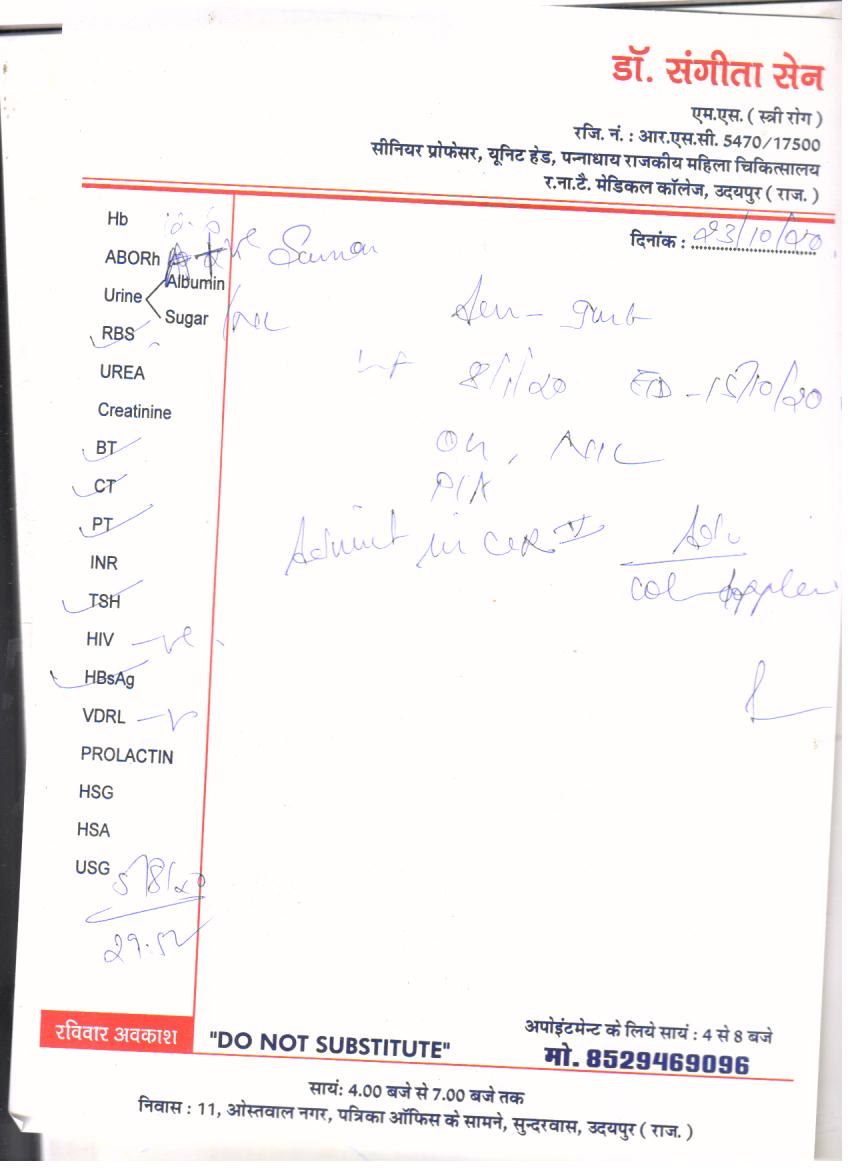 डॉ. संगीता सेन
एम.एस. ( स्त्री रोग )
रजि. नं. : आर.एस.सी. 5470/17500
सीनियर प्रोफेसर, यूनिट हेड, पन्नाधाय राजकीय महिला चिकित्सालय
र.ना.टै. मेडिकल कॉलेज, उदयपुर ( राज. )
दिनांक : 23/10/20
Hb
ABORh
Urine Albumin
Sugar
RBS
UREA
Creatinine
BT
CT
PT
INR
TSH
HIV -ve
HBsAg
VDRL -v
PROLACTIN
HSG
HSA
USG 5/8/20
8/1/20 ED - 15/10/20
Admit in
रविवार अवकाश
"DO NOT SUBSTITUTE"
अपोइंटमेन्ट के लिये सायं : 4 से 8 बजे
मो. 8529469096
सायं: 4.00 बजे से 7.00 बजे तक
निवास : 11, ओस्तवाल नगर, पत्रिका ऑफिस के सामने, सुन्दरवास, उदयपुर ( राज. )